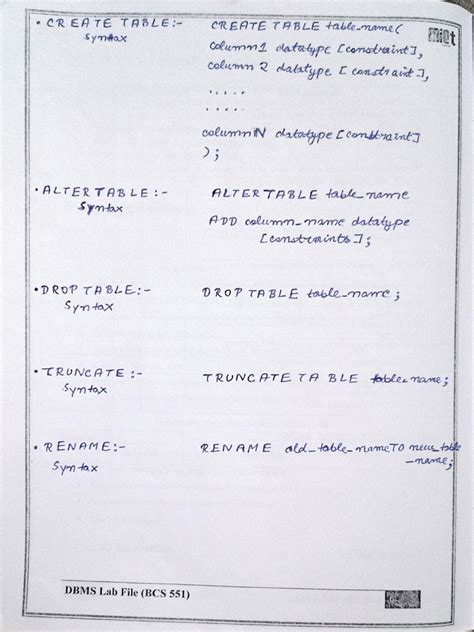 • CREATE TABLE:- CREATE TABLE table_name(
Syntax column1 datatype [constraint],
column 2 datatype [constraint],
.....
.....
columnN datatype [constraint]
);
• ALTER TABLE:- ALTER TABLE table_name
Syntax ADD column_name datatype
[constraints];
• DROP TABLE:- DROP TABLE table_name;
Syntax
• TRUNCATE:- TRUNCATE TABLE table_name;
Syntax
• RENAME:- RENAME old_table_name TO new_table
Syntax _name;
DBMS Lab File (BCS 551)